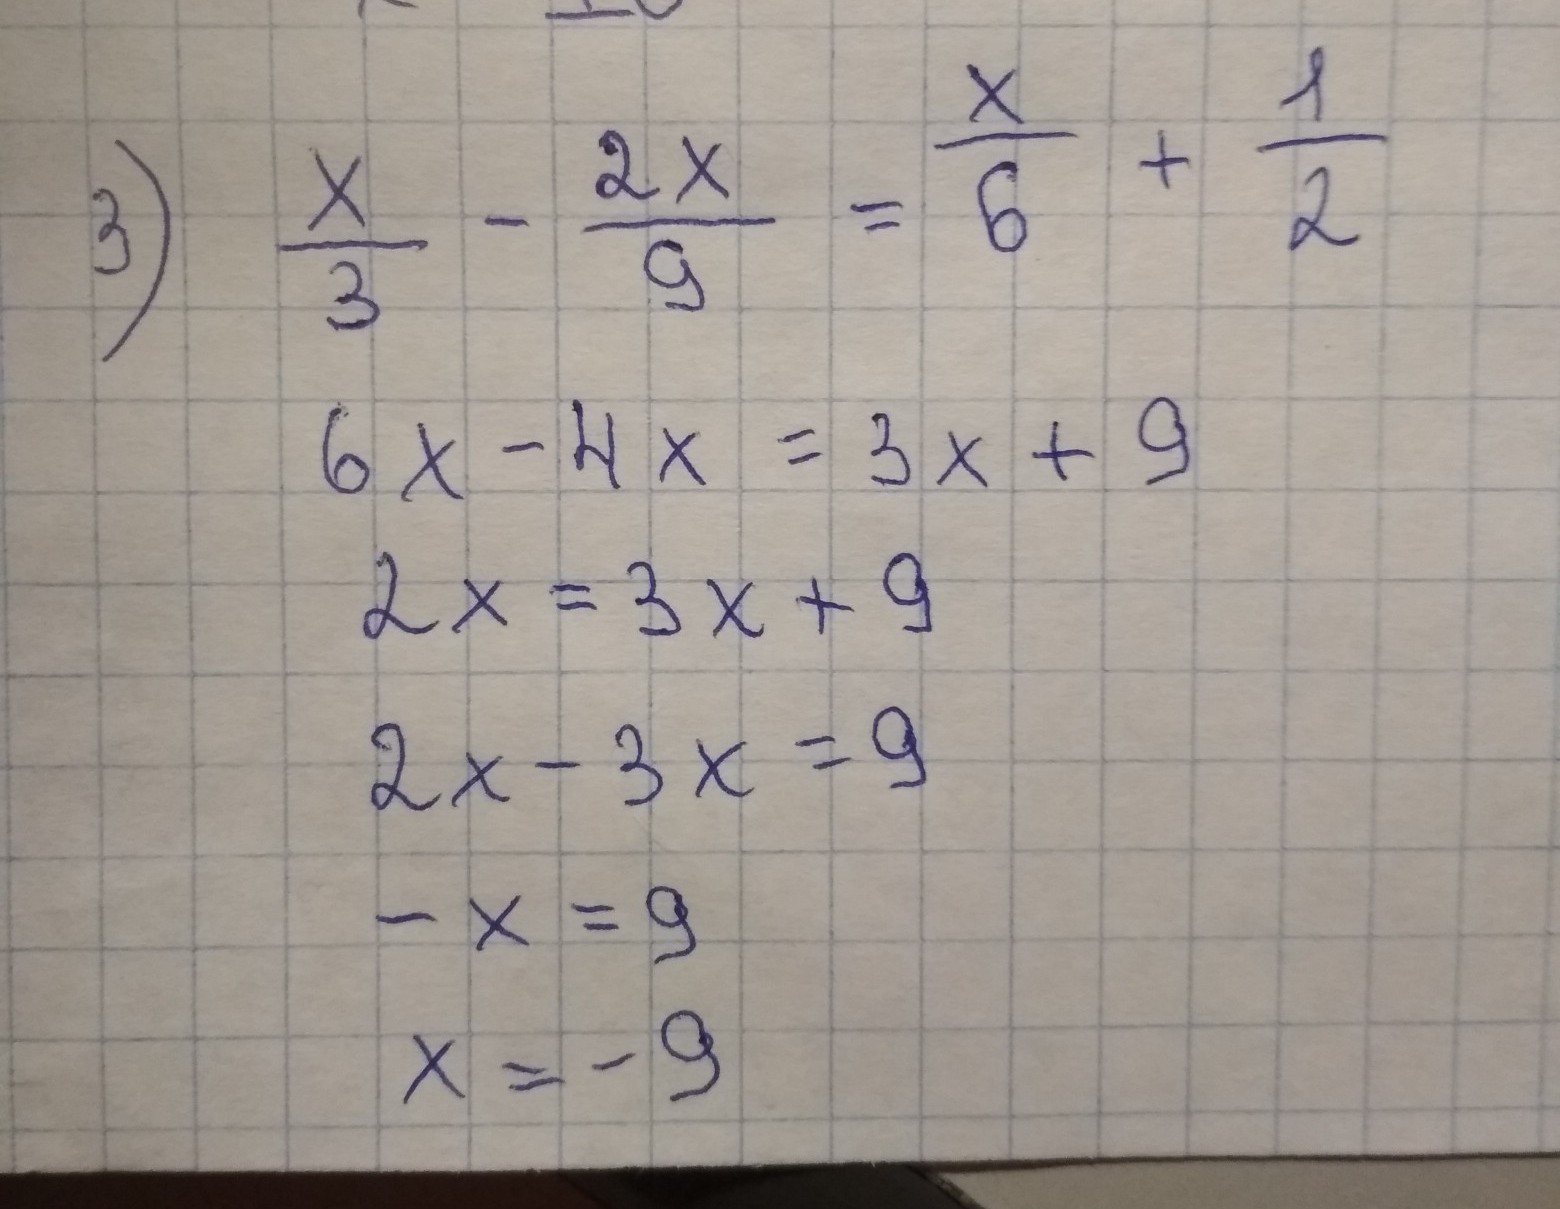 3) x/3 - 2x/9 = x/6 + 1/2
6x - 4x = 3x + 9
2x = 3x + 9
2x - 3x = 9
- x = 9
x = - 9